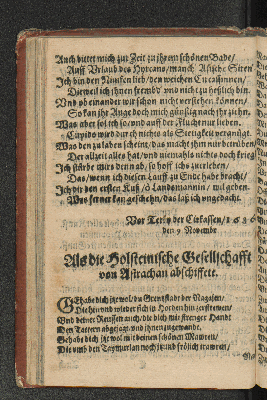 Auch bittet mich zur Zeit zu ihrem schönen Bade/
Auff Urlaub des Hyrcans/ manch Asische Siren
Ich bin den Nimfen lieb/ den weichen Circassinnen/
Dieweil ich ihnen frembd' und nicht zu heßlich bin.
Und ob einander wir schon nicht verstehen können/
So kan ihr Auge doch mich günstig nach ihr ziehn.
Was aber sol ich so/ und auff der Flucht nur lieben.
Cupido wird durch nichts als Stetigkeit vergnügt.
Was den zu laben scheint/ das macht ihm nur betrüben
Der allzeit alles hat/ und niemahls nichts doch kriegt
Ich stürbe mirs denn ab, so hoff ich es zu rieben/
Das/ wenn ich diesen Lauff zu Ende habe bracht/
Ich dir den ersten Kuß/ ô Landsmannin/ mil geben.
Was ferner kan geschehn/ das laß ich ungedacht.
Vor Terky der Cirkassen/ 1636
den 9 Novembr
Als die Holsteinische Gesellschafft
von Astrachan abschiffete.
GEhabe dich itzt wol/ du Grentzstadt der Nagajen/
Die hin und wieder sich in Horden hin zerstreuen/
Und deiner Reussen auch/ die dich mit strenger Handt
Den Tattern abgejagt und ihnen zugewandt.
Gehabe dich itzt wol mit deinen schönen Mauren/
Die umb den Taymurlan noch itzund frölich trauren/